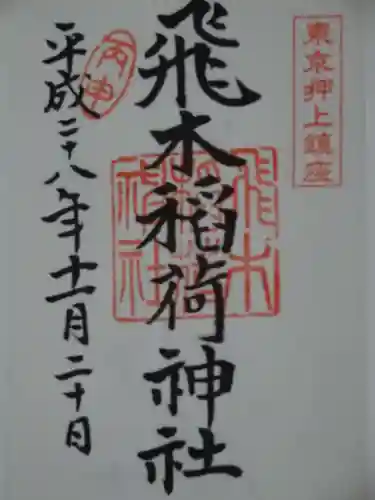 東京押上鎮座
飛木稲荷神社
飛木
稲荷
神社
丙申
平成二十八年十一月二十日